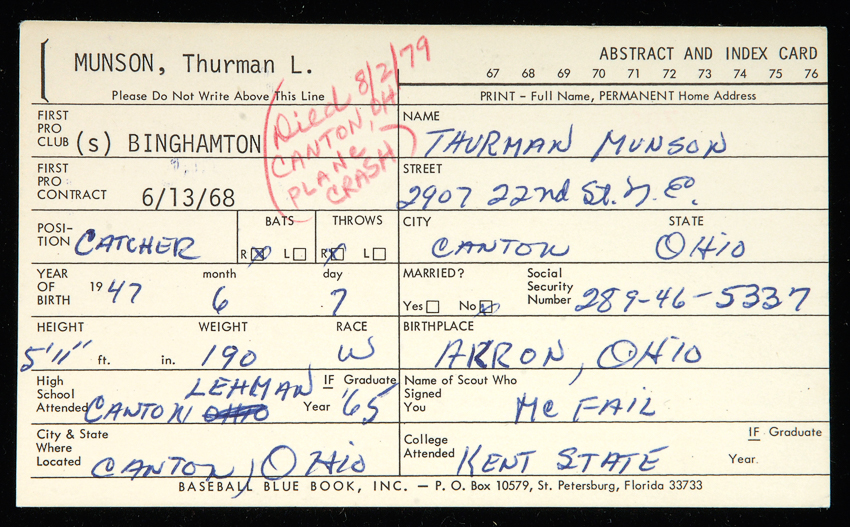 MUNSON, Thurman L.
ABSTRACT AND INDEX CARD
67 68 69 70 71 72 73 74 75 76
Please Do Not Write Above This Line
PRINT - Full Name, PERMANENT Home Address
Died 8/2/79
CANTON, OH
PLANE
CRASH
FIRST PRO CLUB (s) BINGHAMTON
NAME THURMAN MUNSON
FIRST PRO CONTRACT 6/13/68
STREET 2907 22nd St. N.E.
POSI-TION CATCHER
BATS R L
THROWS R L
CITY CANTON
STATE OHIO
YEAR OF BIRTH 1947
month 6
day 7
MARRIED? Yes No
Social Security Number 289-46-5337
HEIGHT 5'11" ft. in.
WEIGHT 190
RACE W
BIRTHPLACE AKRON, OHIO
High School Attended CANTON LEHMAN OHIO
IF Graduate Year '65
Name of Scout Who Signed You Mc FAIL
City & State Where Located CANTON, OHIO
College Attended KENT STATE
IF Graduate Year.
BASEBALL BLUE BOOK, INC. — P. O. Box 10579, St. Petersburg, Florida 33733